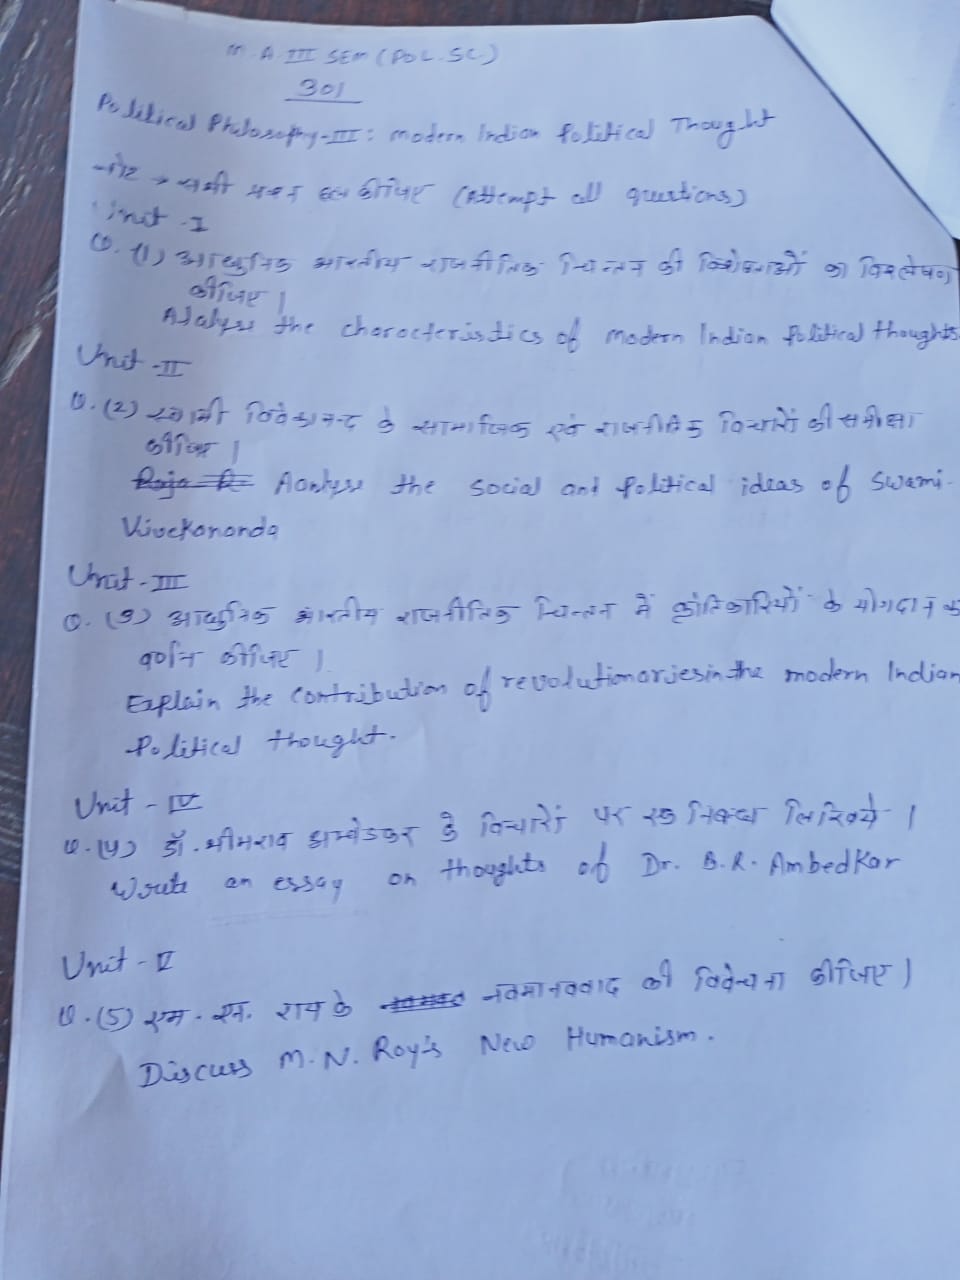 M.A. III SEM (POL.SC.)
301
Political Philosophy-III: Modern Indian Political Thought
नोट → सभी प्रश्न हल कीजिए (Attempt all questions)
Unit - I
Q. (1) आधुनिक भारतीय राजनीतिक चिन्तन की विशेषताओं का विश्लेषण
कीजिए।
Analyse the characteristics of Modern Indian Political thoughts
Unit - II
Q. (2) स्वामी विवेकानन्द के सामाजिक एवं राजनीतिक विचारों की समीक्षा
कीजिए।
Aanlyse the social and Political ideas of Swami-
Vivekananda
Unit - III
Q. (3) आधुनिक भारतीय राजनीतिक चिन्तन में क्रांतिकारियों के योगदान का
वर्णन कीजिए।
Explain the contribution of revolutionaries in the modern Indian
Political thought.
Unit - IV
Q. (4) डॉ. भीमराव अम्बेडकर के विचारों पर एक निबन्ध लिखिये।
Write an essay on thoughts of Dr. B.R. Ambedkar
Unit - V
Q. (5) एम. एन. राय के नवमानववाद की विवेचना कीजिए।
Discuss M. N. Roy's New Humanism.